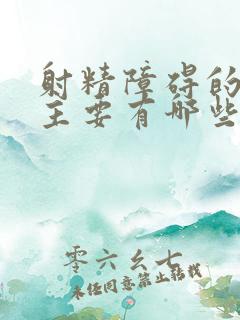 射精障碍的
主要有哪些
零六幺七
未经同意禁止转载